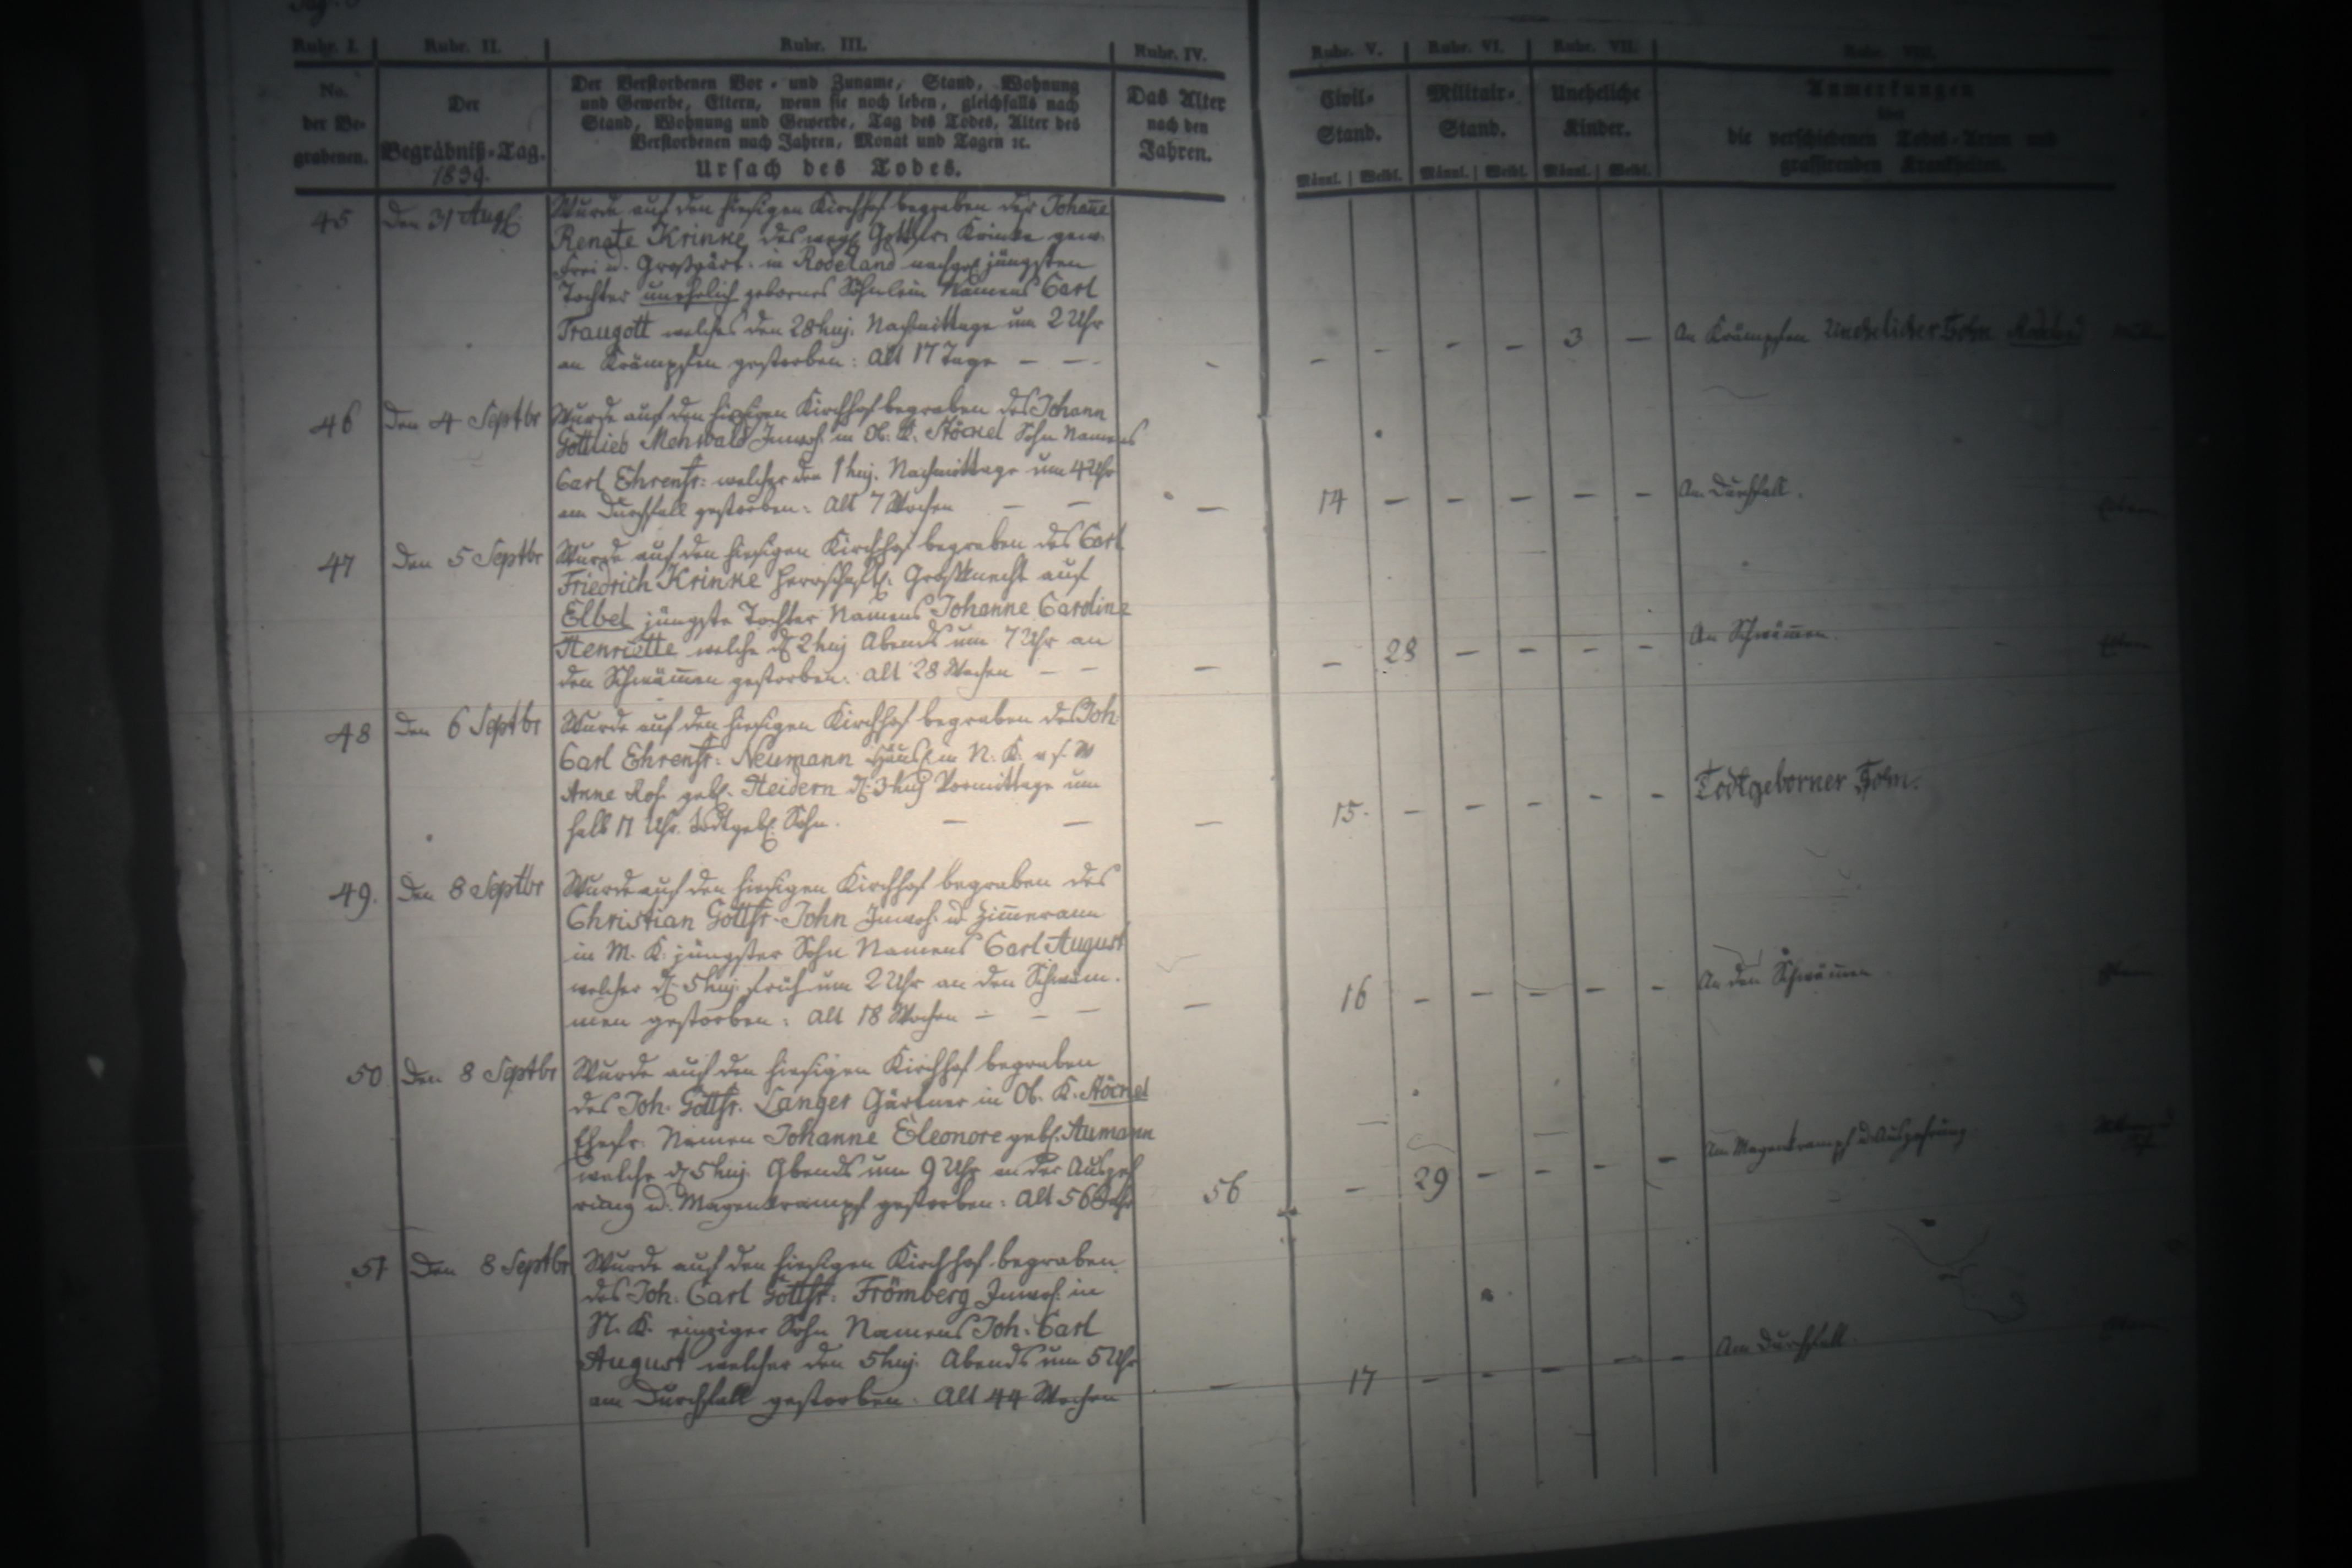 Rubr. I. Rubr. II. Rubr. III. Rubr. IV. Rubr. V. Rubr. VI. Rubr. VII. Rubr. VIII.
No. der Be- grabenen.
Der Begräbniß-Tag. 1839.
Der Verstorbenen Vor- und Zuname, Stand, Wohnung
und Gewerbe, Eltern, wenn sie noch leben, gleichfalls nach
Stand, Wohnung und Gewerbe, Tag des Todes, Alter des
Verstorbenen nach Jahren, Monat und Tagen ꝛc.
Ursach des Todes.
Das Alter
nach den
Jahren.
Civil-
Stand.
Männl. Weibl.
Militair-
Stand.
Männl. Weibl.
Uneheliche
Kinder.
Männl. Weibl.
Anmerkungen
über
die verschiedenen Todes-Arten und
grassirenden Krankheiten.
45 Den 31 Aug. Wurde auf den hiesigen Kirchhof begraben der Johañe
Renate Krinke des Gottfr. Krinke gew.
Frei u. Großgärt. in Rodeland jüngsten
Tochter unehelich gebornes Söhnlein Namens Carl
Traugott welches den 28 huj. Nachmittage um 2 Uhr
an Krämpfen gestorben: Alt 17 Tage — — - - - - - - 3 — An Krämpfen Unehelicher Sohn
46 Den 4 Septbr Wurde auf den hiesigen Kirchhof begraben des Johann
Gottlieb Mehwald Inwoh. in Ob. K. Stöckel Sohn Namens
Carl Ehrenfr: welcher den 1 huj. Nachmittage um 4 Uhr
am Durchfall gestorben: Alt 7 Wochen — — — 14 — — — — — Am Durchfall.
47 Den 5 Septbr Wurde auf den hiesigen Kirchhof begraben des Carl
Friedrich Krinke herrschaftl. Großknecht auf
Elbel jüngste Tochter Namens Johanne Caroline
Henriette welche d. 2 huj Abends um 7 Uhr an
den Schwäm̃en gestorben: Alt 28 Wochen — — — — 28 — — — — An Schwäm̃en.
48 Den 6 Septbr Wurde auf den hiesigen Kirchhof begraben des Joh.
Carl Ehrenfr: Neumann Häusl. in N. K. u. s. W
Anne Ros. geb. Heidern d. 3 huj Vormittage um
halb 11 Uhr. todtgeb. Sohn. — — — 15. — — — — — Todtgeborner Sohn.
49. Den 8 Septbr Wurde auf den hiesigen Kirchhof begraben des
Christian Gottfr. John Inwoh. u. Zim̃erman
in M. K. jüngster Sohn Namens Carl August
welcher d. 5 huj. früh um 2 Uhr an den Schwäm-
men gestorben: Alt 18 Wochen — — — — 16 — — — — — An den Schwäm̃en
50 Den 8 Septbr Wurde auf den hiesigen Kirchhof begraben
des Joh. Gottfr. Langer Gärtner in Ob. K. Stöckel
Ehefr. Namen Johanne Eleonore geb. Aumann
welche d. 5 huj. Abends um 9 Uhr an der Auszeh
rung u. Magenkrampf gestorben: Alt 56 Jahr 56 — 29 — — — — Am Magenkrampf u. Auszehrung
51 Den 8 Septbr Wurde auf den hiesigen Kirchhof begraben
des Joh. Carl Gottfr: Frömberg Inwoh. in
N. K. einziger Sohn Namens Joh. Carl
August welcher den 5 huj. Abends um 5 Uhr
am Durchfall gestorben: Alt 44 Wochen — 17 — — — — — Am Durchfall